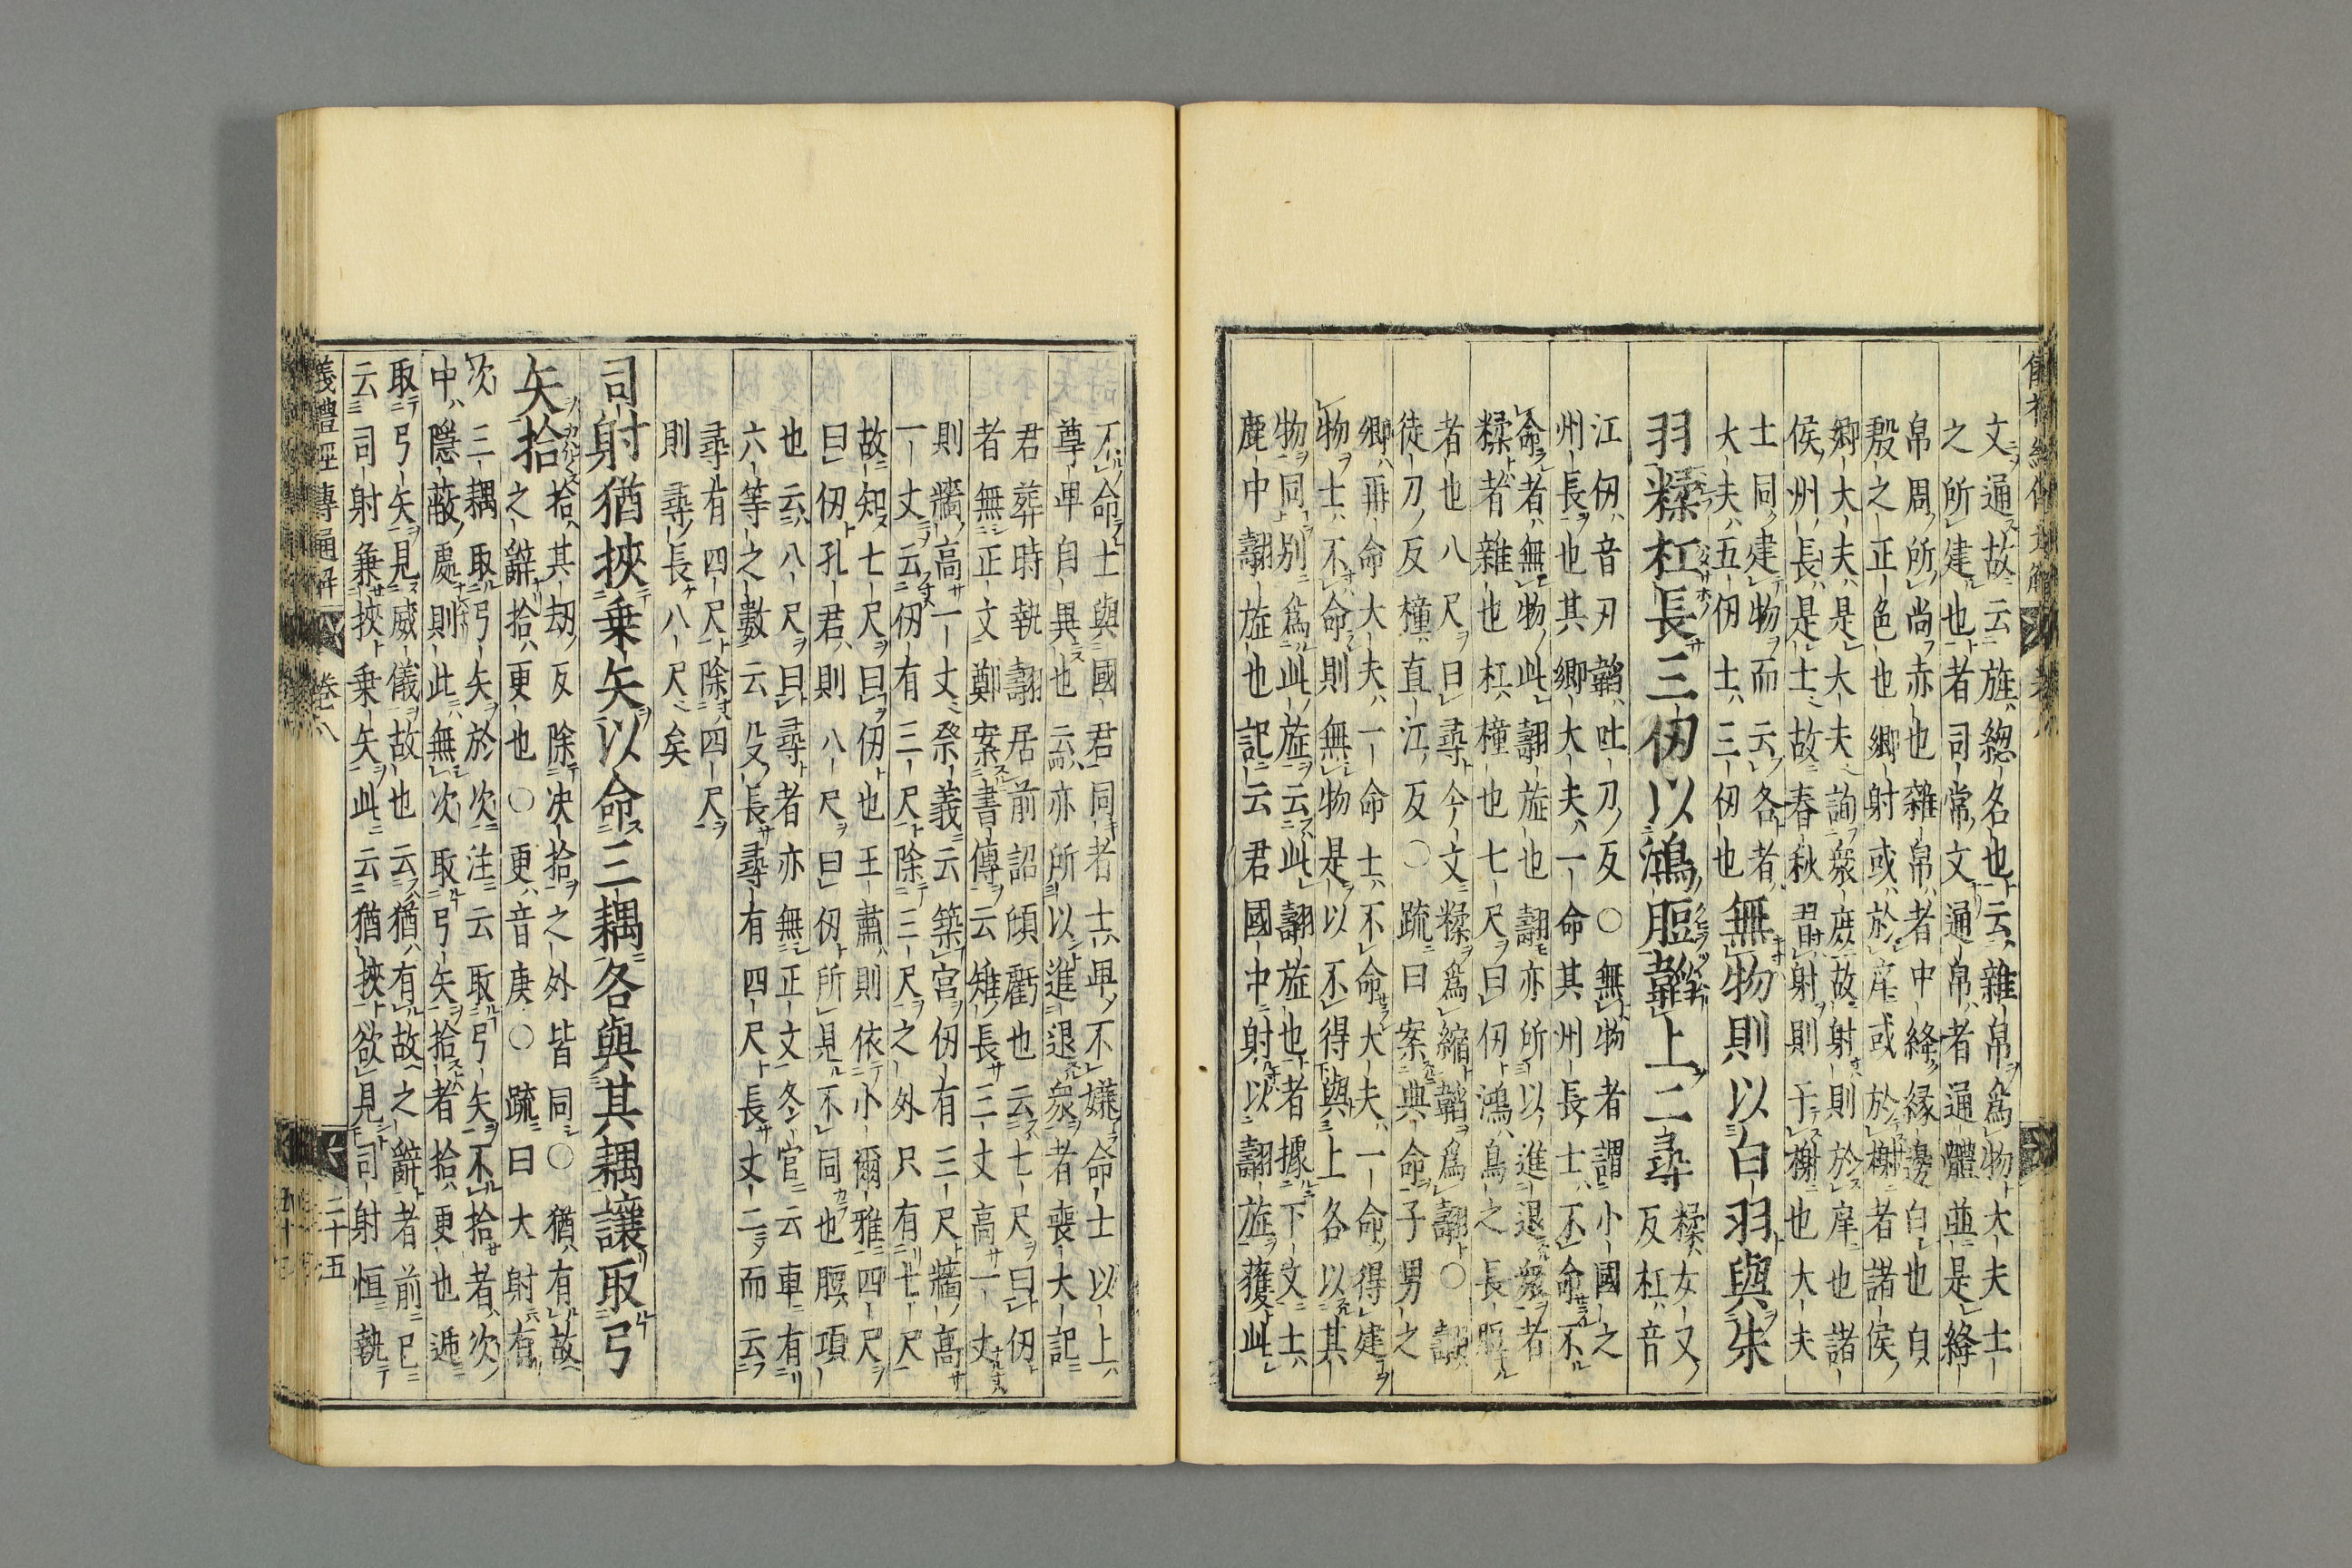 文通故云旌總名也云雜帛為物大夫士
之所建也者司常文通帛者通體並是絳
帛周所尚赤也雜帛者中絳緣邊白也白
殷之正色也鄉射或於庠或於榭者諸侯
鄉大夫是大夫詢衆庶故射則於庠也諸
侯州長是士故春秋習射則于榭也大夫
士同建物而云各者
大夫五仞士三仞也
無物則以白羽與朱
羽糅杠長三仞以鴻脰韜上二尋
糅女又
反杠音
江仞音刃韜吐刀反○無物者謂小國之
州長也其卿大夫一命其州長士不命不
命者無物此翿旌也翿亦所以進退衆者
糅者雜也杠橦也七尺曰仞鴻鳥之長脰
者也八尺曰尋今文糅為縮韜為翿○翿
徒刀反橦直江反○疏曰案典命子男之
卿再命大夫一命士不命大夫一命得建
物士不命則無物是以不得與上各以其
物同別為此旌云此翿旌也者據下文士
鹿中翿旌也記云君國中射以翿旌獲此
不命士與國君同者士卑不嫌命士以上
尊卑自異也云亦所以進退衆者喪大記
君葬時執翿居前詔傾虧也云七尺曰仞
者無正文鄭案書傳云雉長三丈高一丈
則牆高一丈祭義云築宮仞有三尺牆高
一丈云仞有三尺除三尺之外只有七尺
故知七尺曰仞也王肅則依小爾雅四尺
曰仞孔君則八尺曰仞所見不同也脰項
也云八尺曰尋者亦無正文冬官云車有
六等之數云殳長尋有四尺長丈二而云
尋有四尺除四尺
則尋長八尺矣
司射猶挾乘矢以命三耦各與其耦讓取弓
矢拾
拾其刼反除决拾之外皆同○猶有故
之辭拾更也○更音庚○疏曰大射有
次三耦取弓矢於次注云取弓矢不拾者次
中隱蔽處則此無次取弓矢拾者拾更也遞
取弓矢見威儀故也云猶有故之辭者前已
云司射兼挾乘矢此云猶挾欲見司射恒執
儀禮經傳通解 卷八 二十五